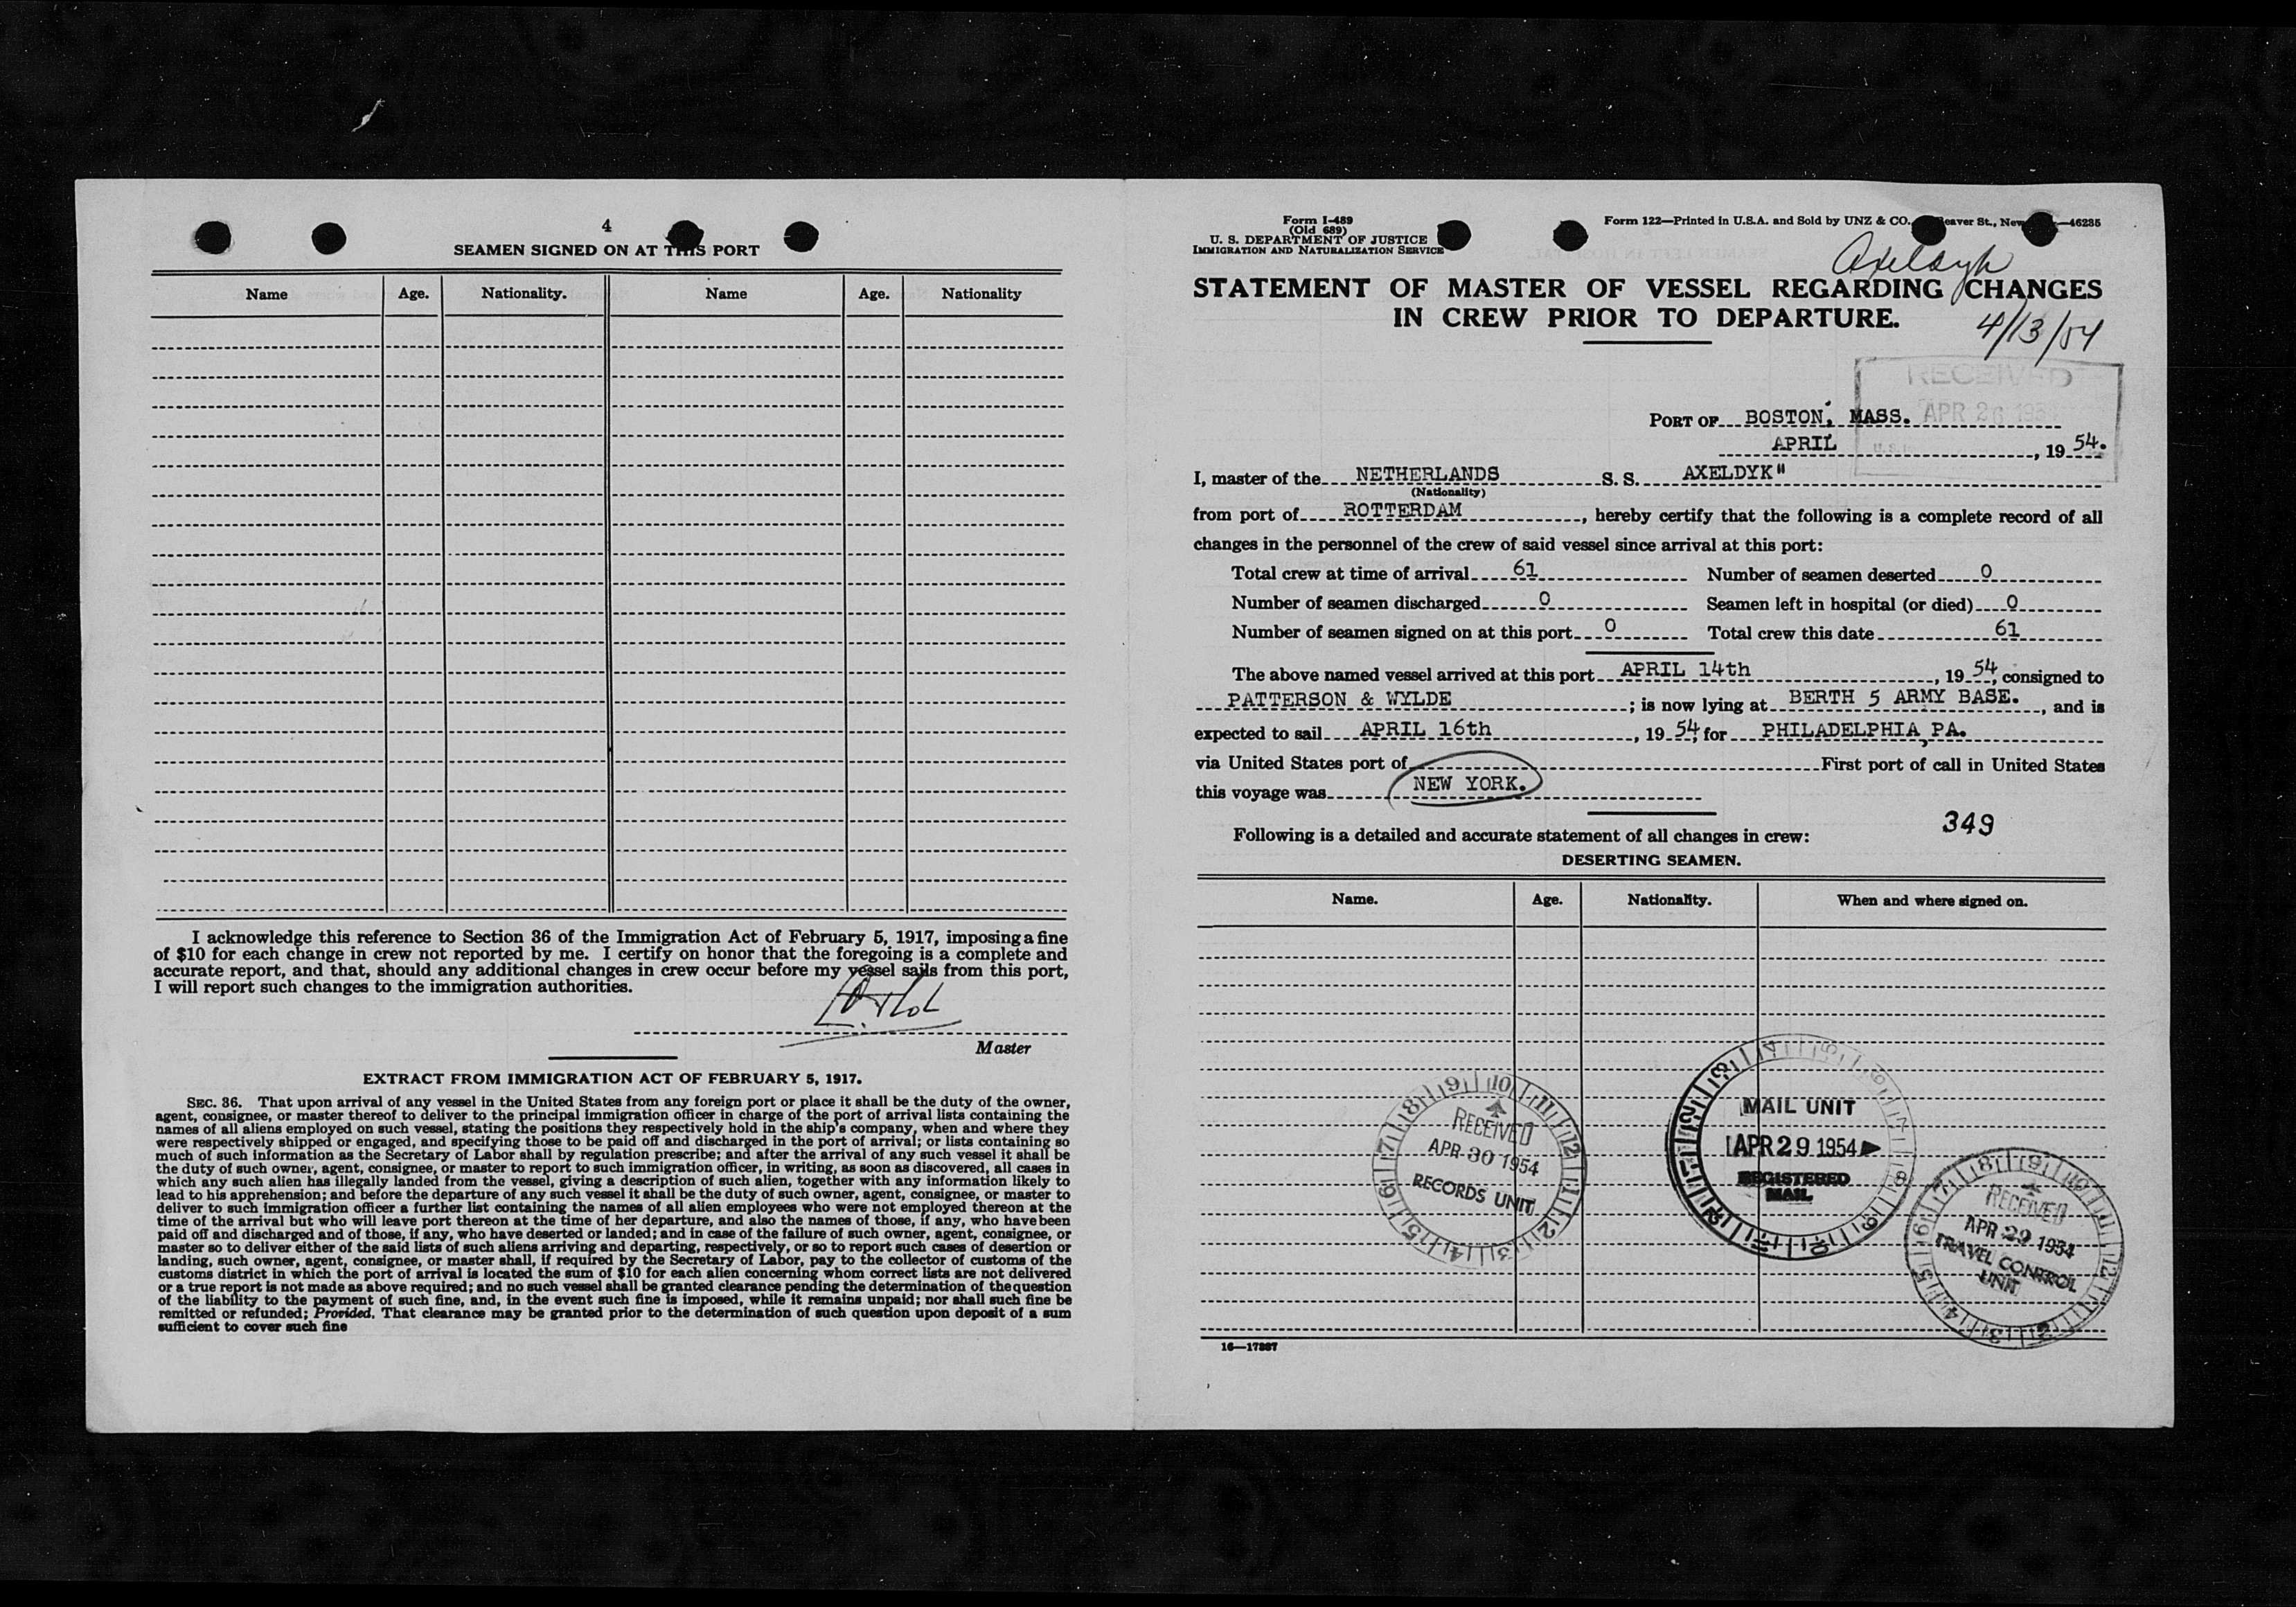 4
SEAMEN SIGNED ON AT THIS PORT
Name Age. Nationality. Name Age. Nationality
I acknowledge this reference to Section 36 of the Immigration Act of February 5, 1917, imposing a fine
of $10 for each change in crew not reported by me. I certify on honor that the foregoing is a complete and
accurate report, and that, should any additional changes in crew occur before my vessel sails from this port,
I will report such changes to the immigration authorities.
Master
EXTRACT FROM IMMIGRATION ACT OF FEBRUARY 5, 1917.
SEC. 36. That upon arrival of any vessel in the United States from any foreign port or place it shall be the duty of the owner,
agent, consignee, or master thereof to deliver to the principal immigration officer in charge of the port of arrival lists containing the
names of all aliens employed on such vessel, stating the positions they respectively hold in the ship's company, when and where they
were respectively shipped or engaged, and specifying those to be paid off and discharged in the port of arrival; or lists containing so
much of such information as the Secretary of Labor shall by regulation prescribe; and after the arrival of any such vessel it shall be
the duty of such owner, agent, consignee, or master to report to such immigration officer, in writing, as soon as discovered, all cases in
which any such alien has illegally landed from the vessel, giving a description of such alien, together with any information likely to
lead to his apprehension; and before the departure of any such vessel it shall be the duty of such owner, agent, consignee, or master to
deliver to such immigration officer a further list containing the names of all alien employees who were not employed thereon at the
time of the arrival but who will leave port thereon at the time of her departure, and also the names of those, if any, who have been
paid off and discharged and of those, if any, who have deserted or landed; and in case of the failure of such owner, agent, consignee, or
master so to deliver either of the said lists of such aliens arriving and departing, respectively, or so to report such cases of desertion or
landing, such owner, agent, consignee, or master shall, if required by the Secretary of Labor, pay to the collector of customs of the
customs district in which the port of arrival is located the sum of $10 for each alien concerning whom correct lists are not delivered
or a true report is not made as above required; and no such vessel shall be granted clearance pending the determination of the question
of the liability to the payment of such fine, and, in the event such fine is imposed, while it remains unpaid; nor shall such fine be
remitted or refunded; Provided, That clearance may be granted prior to the determination of such question upon deposit of a sum
sufficient to cover such fine
Form I-489
(Old 689)
U. S. DEPARTMENT OF JUSTICE
IMMIGRATION AND NATURALIZATION SERVICE
Form 122—Printed in U.S.A. and Sold by UNZ & CO. eaver St., New —46235
Axeldyk
STATEMENT OF MASTER OF VESSEL REGARDING CHANGES
IN CREW PRIOR TO DEPARTURE.
4/13/54
RECEIVED
APR 26 195
PORT OF BOSTON, MASS.
APRIL, 19 54.
I, master of the NETHERLANDS S. S. AXELDYK"
(Nationality)
from port of ROTTERDAM, hereby certify that the following is a complete record of all
changes in the personnel of the crew of said vessel since arrival at this port:
Total crew at time of arrival 61 Number of seamen deserted 0
Number of seamen discharged 0 Seamen left in hospital (or died) 0
Number of seamen signed on at this port 0 Total crew this date 61
The above named vessel arrived at this port APRIL 14th, 19 54, consigned to
PATTERSON & WYLDE; is now lying at BERTH 5 ARMY BASE., and is
expected to sail APRIL 16th, 19 54, for PHILADELPHIA, PA.
via United States port of First port of call in United States
this voyage was NEW YORK.
349
Following is a detailed and accurate statement of all changes in crew:
DESERTING SEAMEN.
Name. Age. Nationality. When and where signed on.
RECEIVED
APR 30 1954
RECORDS UNIT
MAIL UNIT
APR 29 1954
REGISTERED
MAIL
RECEIVED
APR 29 1954
TRAVEL CONTROL
UNIT
16—17887